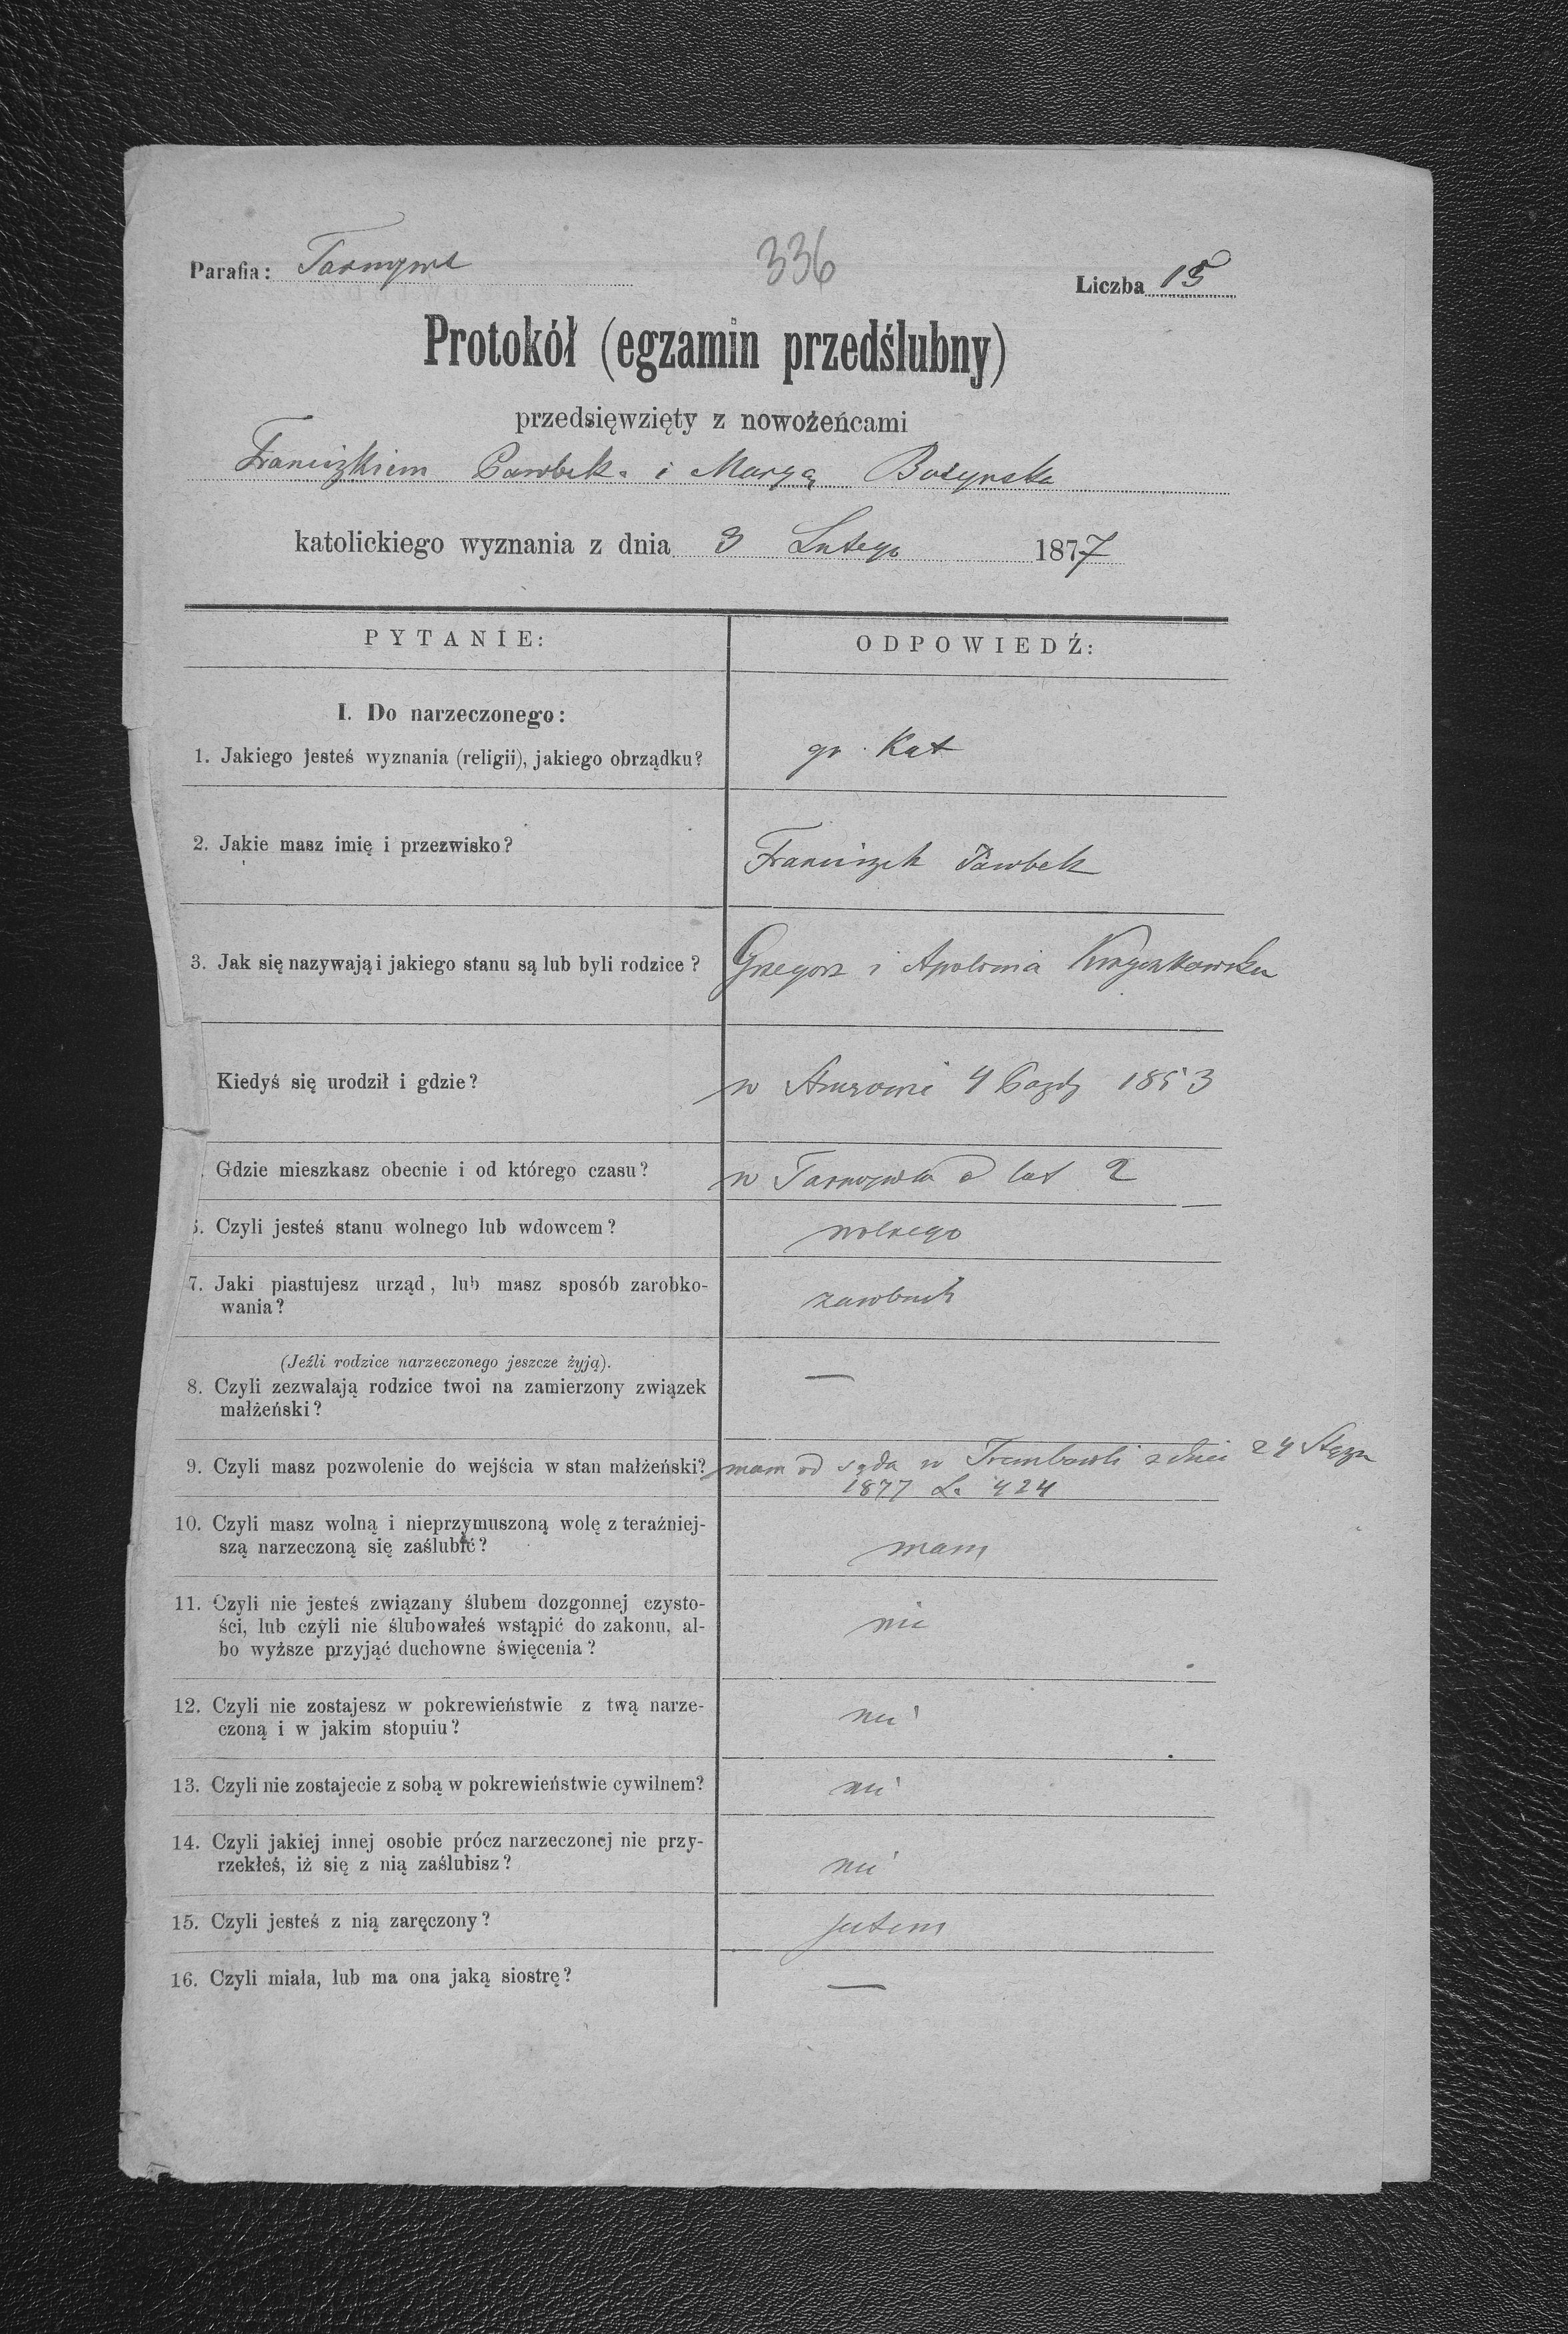 Parafia: 
336
Liczba 15
Protokół (egzamin przedślubny)
przedsięwzięty z nowożeńcami
Franciszkiem i Maryą
katolickiego wyznania z dnia 3 Lutego 1877
PYTANIE:
ODPOWIEDŹ:
I. Do narzeczonego:
1. Jakiego jesteś wyznania (religii), jakiego obrządku?
gr. Kat
2. Jakie masz imię i przezwisko?
Franciszek
3. Jak się nazywają i jakiego stanu są lub byli rodzice?
Grzegorz i Apolonia
Kiedyś się urodził i gdzie?
w 4 1853
. Gdzie mieszkasz obecnie i od którego czasu?
w lat 2
6. Czyli jesteś stanu wolnego lub wdowcem?
wolnego
7. Jaki piastujesz urząd, lub masz sposób zarobko-
wania?
(Jeźli rodzice narzeczonego jeszcze żyją).
8. Czyli zezwalają rodzice twoi na zamierzony związek
małżeński?
—
9. Czyli masz pozwolenie do wejścia w stan małżeński?
mam od sądu w Trembowli z dnia 24
1877 L. 424
10. Czyli masz wolną i nieprzymuszoną wolę z teraźniej-
szą narzeczoną się zaślubić?
mam
11. Czyli nie jesteś związany ślubem dozgonnej czysto-
ści, lub czyli nie ślubowałeś wstąpić do zakonu, al-
bo wyższe przyjąć duchowne święcenia?
nie
12. Czyli nie zostajesz w pokrewieństwie z twą narze-
czoną i w jakim stopuiu?
nie
13. Czyli nie zostajecie z sobą w pokrewieństwie cywilnem?
nie
14. Czyli jakiej innej osobie prócz narzeczonej nie przy-
rzekłeś, iż się z nią zaślubisz?
nie
15. Czyli jesteś z nią zaręczony?
jestem
16. Czyli miała, lub ma ona jaką siostrę?
—